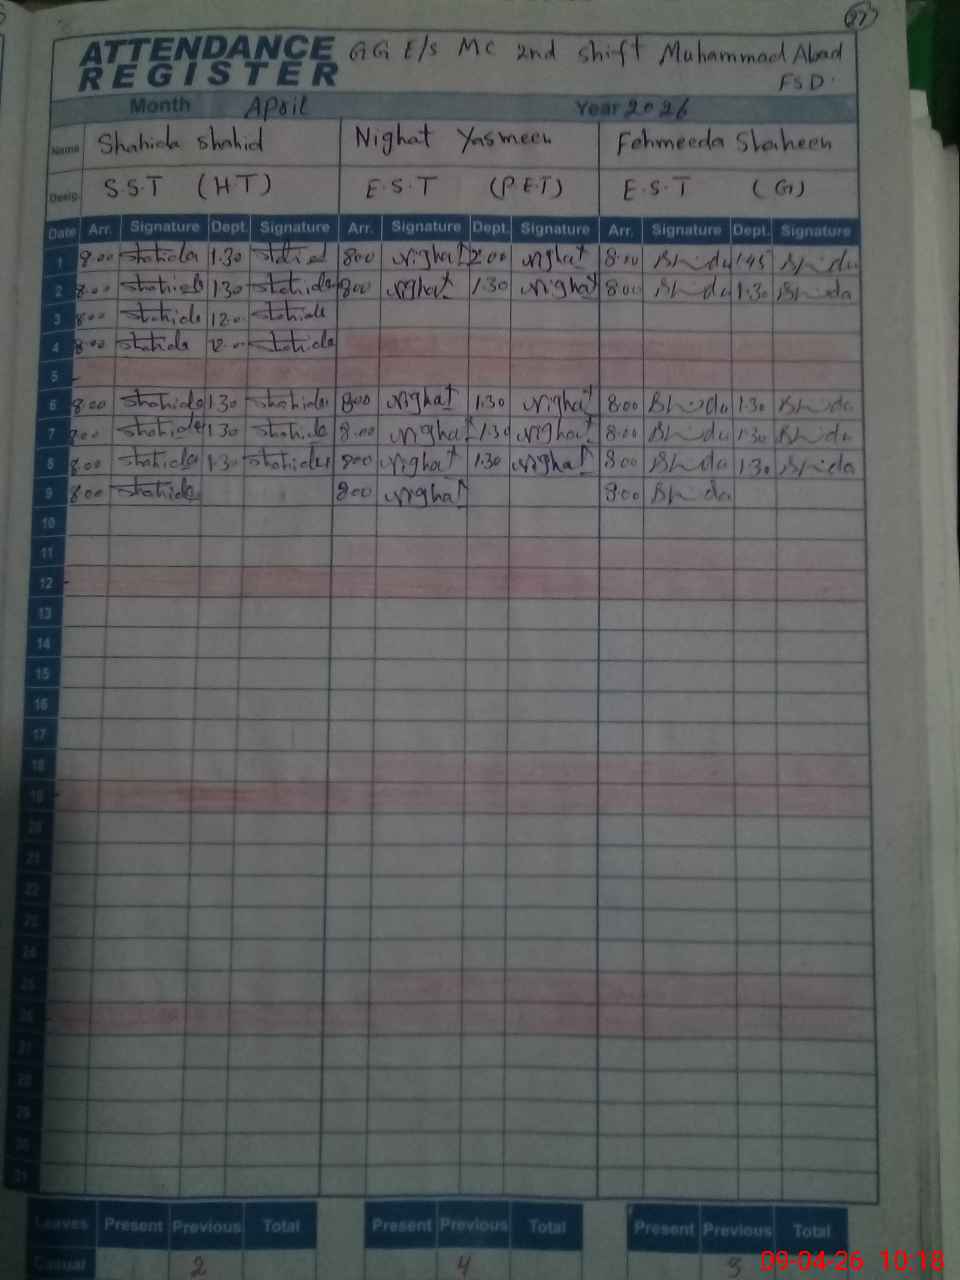 27
ATTENDANCE REGISTER GG E/s MC 2nd shift Muhammad Abad
FSD.
Month April Year 2026
Name Shahida shahid Nighat Yasmeen Fehmeeda Shaheen
Desig. S.S.T (H.T) E.S.T (P.E.T) E.S.T (G)
Date Arr. Signature Dept. Signature Arr. Signature Dept. Signature Arr. Signature Dept. Signature
1 8.00 Shahida 1.30 800 Nighat 2.00 Nighat 8.00 1.45
2 8.00 Shahida 1.30 Shahida 800 Nighat 1.30 Nighat 8.00 1.30
3 8.00 Shahida 12.00 Shahida
4 8.00 Shahida 12.00 Shahida
5
6 8.00 Shahida 1.30 Shahida 800 Nighat 1.30 Nighat 8.00 1.30
7 8.00 Shahida 1.30 Shahida 8.00 Nighat 1.30 Nighat 8.00 1.30
8 8.00 Shahida 1.30 Shahida 800 Nighat 1.30 Nighat 8.00 1.30
9 8.00 Shahida 800 Nighat 8.00
10
11
12
13
14
15
16
17
18
19
20
21
22
23
24
25
26
27
28
29
30
31
Leaves Present Previous Total Present Previous Total Present Previous Total
Casual 2 4
09-04-26 10:18